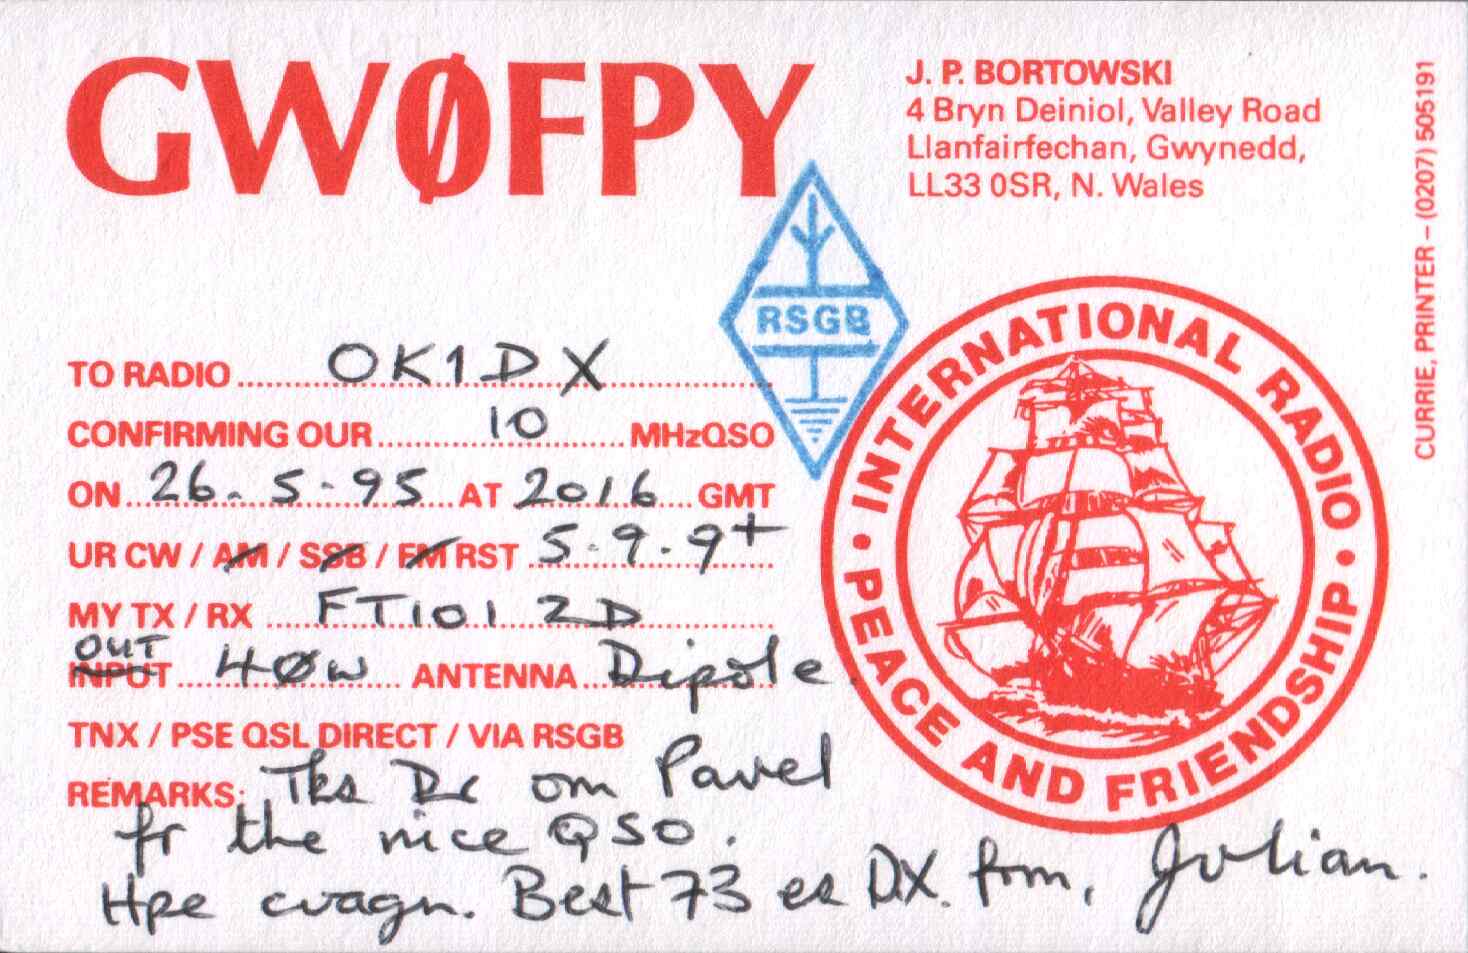 GWØFPY
J. P. BORTOWSKI
4 Bryn Deiniol, Valley Road
Llanfairfechan, Gwynedd,
LL33 0SR, N. Wales
CURRIE, PRINTER – (0207) 505191
RSGB
INTERNATIONAL RADIO
• PEACE AND FRIENDSHIP •
TO RADIO OK1DX
CONFIRMING OUR 10 MHz QSO
ON 26.5.95 AT 2016 GMT
UR CW / AM / SSB / FM RST 5.9.9+
MY TX / RX FT101 ZD
OUT
INPUT 40W ANTENNA Dipole
TNX / PSE QSL DIRECT / VIA RSGB
REMARKS: Tks Dr om Pavel
fr the nice QSO.
Hpe cuagn. Best 73 es DX. frm, Julian.